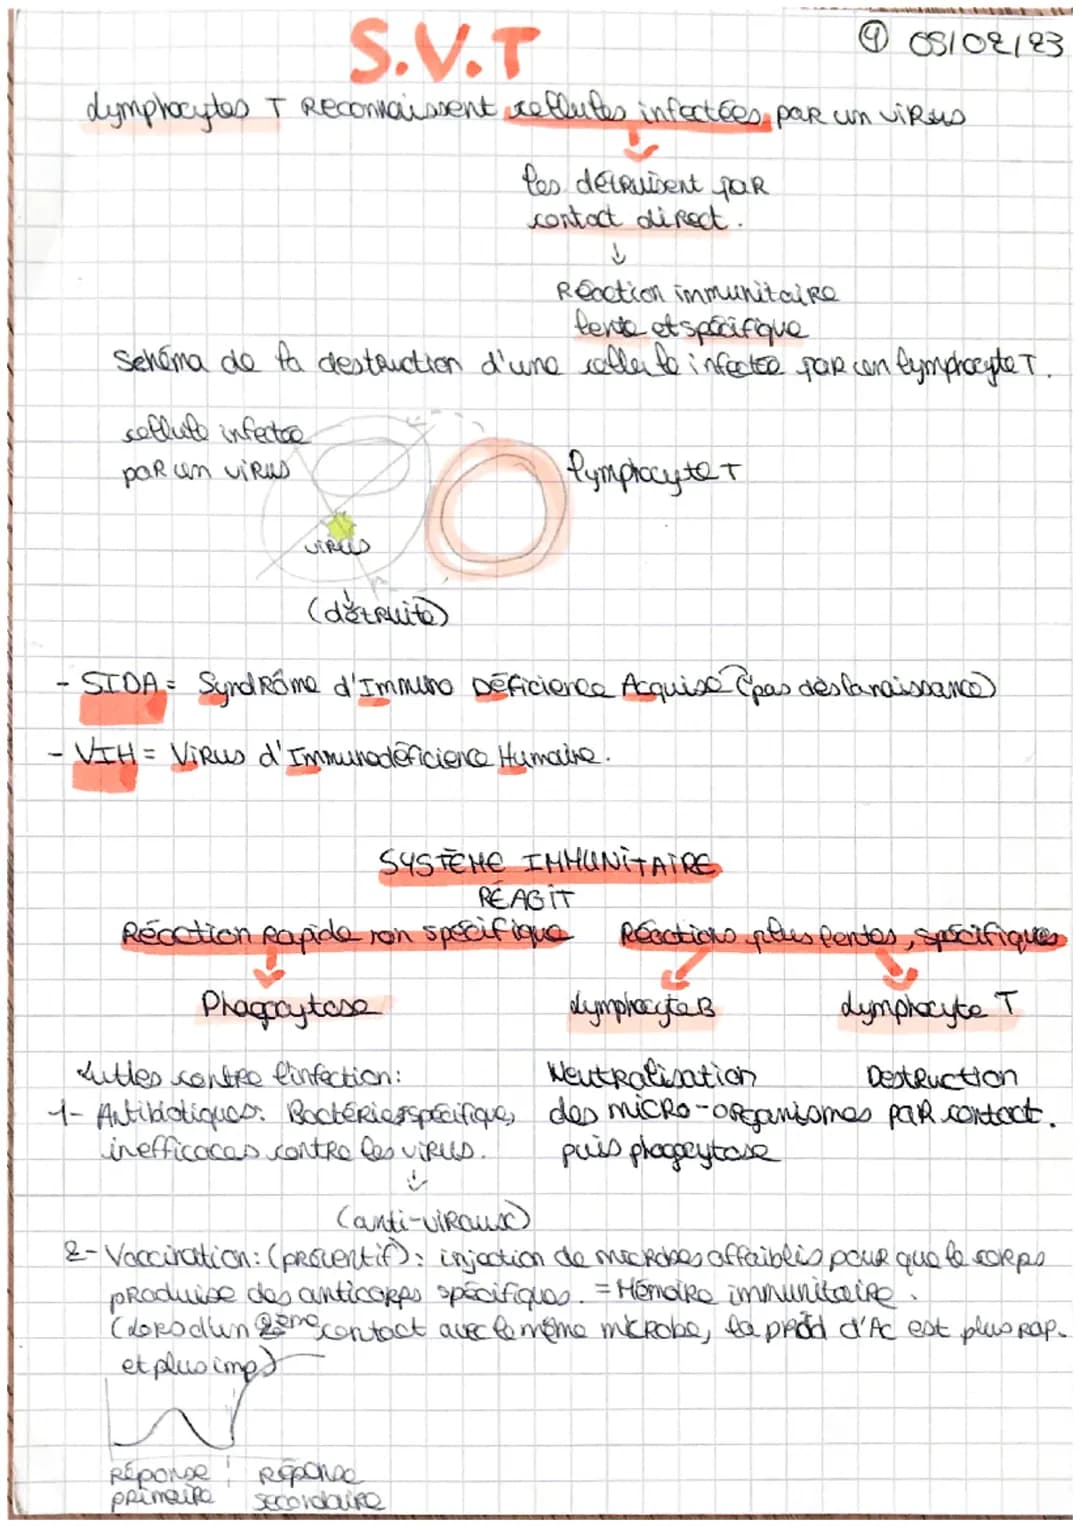 S.V.T
④ 05/02/23
Lymphocytes T Reconnaissent cellules infectées par un virus
les détruisent par
contact direct.
Réaction immunitaire
lente et spécifique
Schéma de la destruction d'une cellule infectée par un lymphocyte T.
cellule infectée
par un virus
lymphocyte T
virus
(détruite)
- SIDA = Syndrôme d'Immuno Déficience Acquise (pas dès la naissance)
- VIH = Virus d'Immunodéficience Humaine.
SYSTÈME IMMUNITAIRE
RÉAGIT
Réaction rapide non spécifique Réactions plus lentes, spécifiques
Phagocytose Lymphocyte B Lymphocyte T
Luttes contre l'infection: Neutralisation Destruction
1- Antibiotiques: Bactéries spécifique, des micro-organismes par contact.
inefficaces contre les virus. puis phagocytose
(anti-viraux)
2- Vaccination: (préventif): injection de microbes affaiblis pour que le corps
produise des anticorps spécifiques. = Mémoire immunitaire.
(Lors d'un 2ème contact avec le même microbe, la prod d'Ac est plus rap.
et plus imp)
Réponse Réponse
primaire secondaire